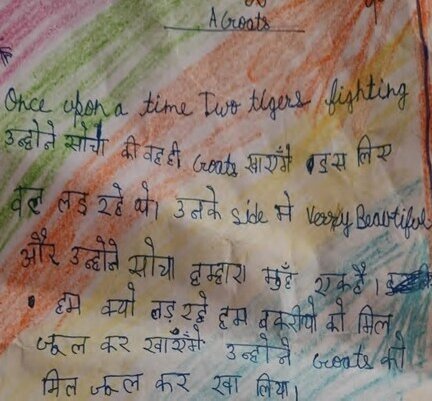 A Goats
Once upon a time Two tigers fighting
उन्होने सोचा की वह ही Goats खाएँगे इस लिए
वह लड़ रहे थे। उनके side मे Verry Beautiful
और उन्होने सोचा हम्हारा मुहँ एक है।
हम क्यो लड़ रहे हम बकरीयो को मिल
जूल कर खाएँगे उन्होने Goats को
मिल जूल कर खा लिया।